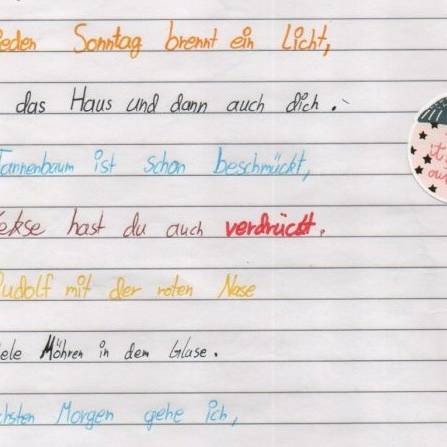 eden Sonntag brennt ein Licht,
das Haus und dann auch dich.
Tannenbaum ist schon beschmückt,
ekse hast du auch verdrückt.
Rudolf mit der roten Nase
iele Möhren in dem Glase.
chsten Morgen gehe ich,